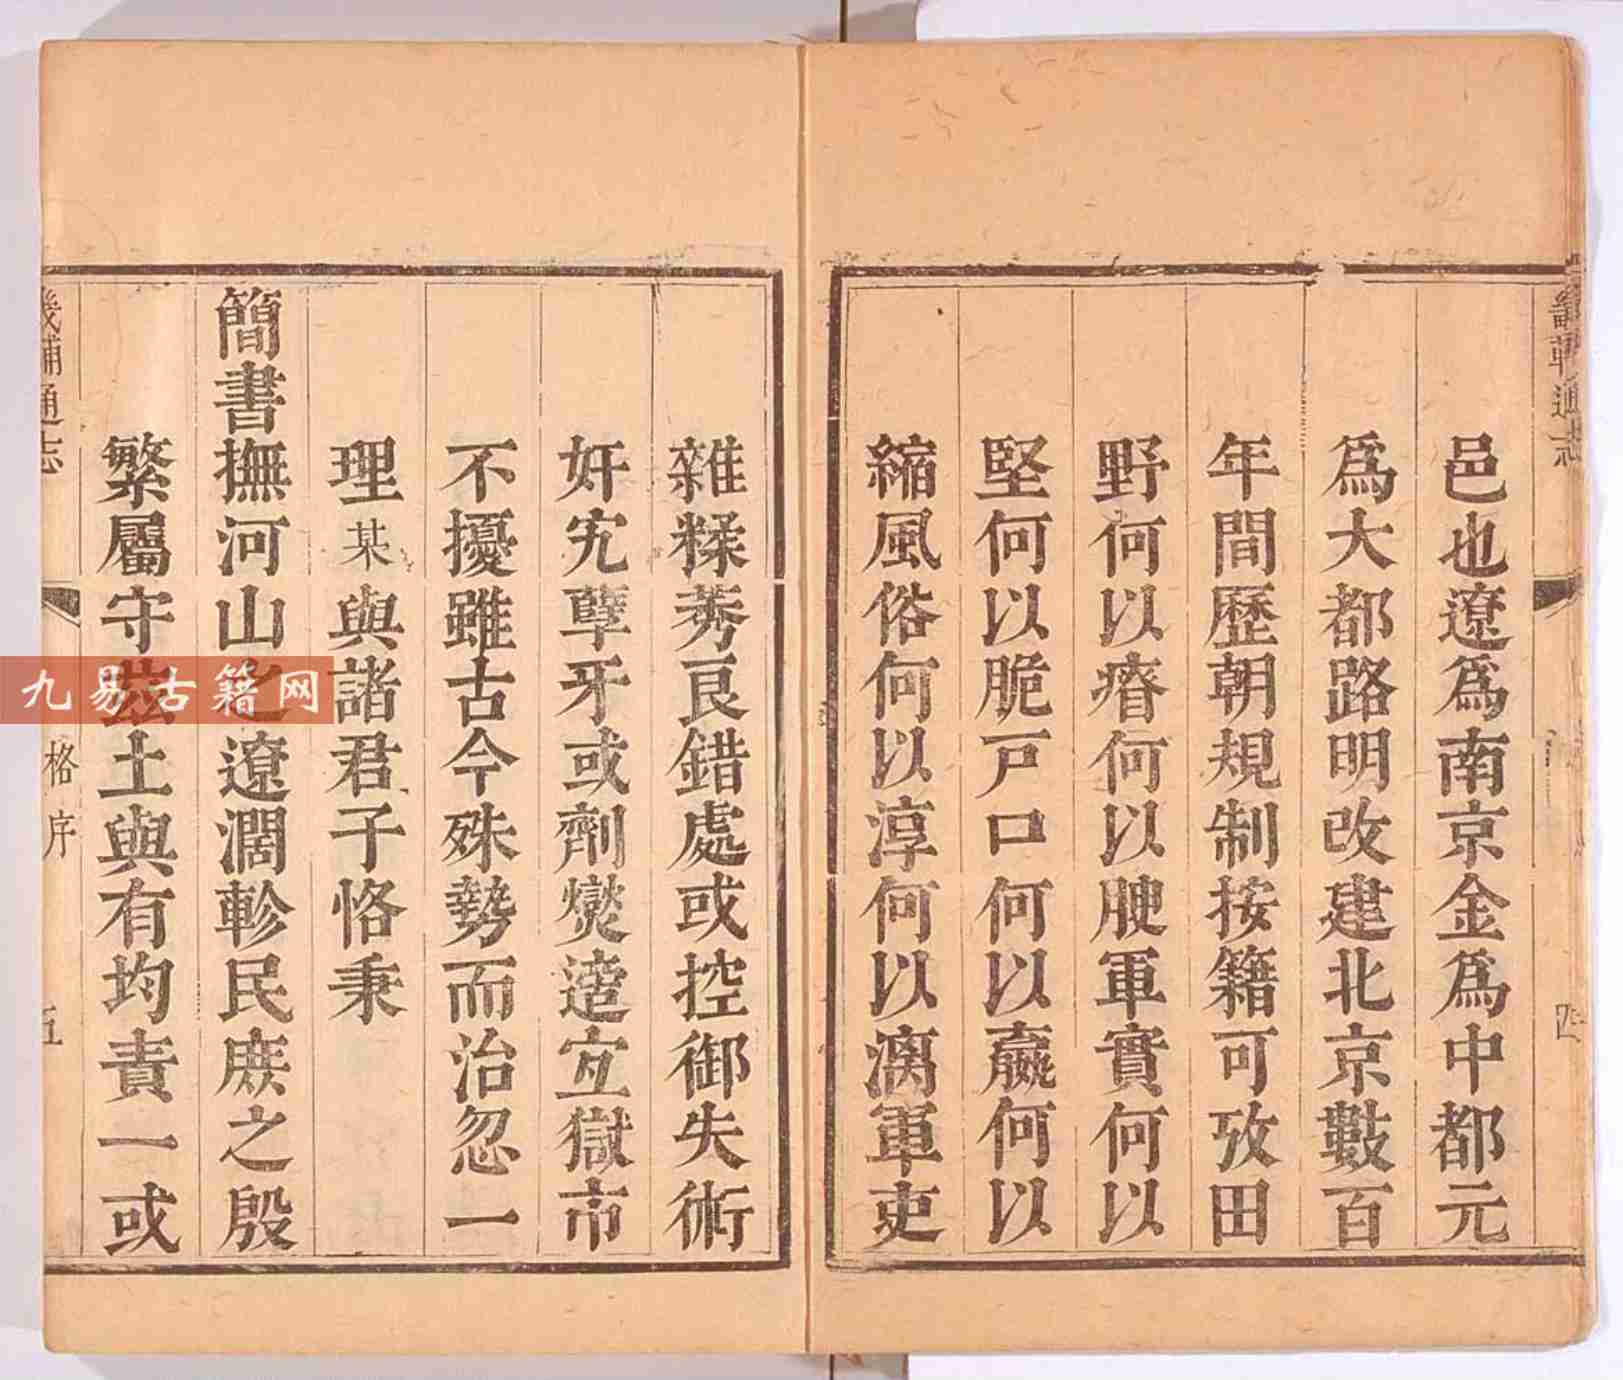 畿輔通志
四
邑也遼爲南京金爲中都元
爲大都路明改建北京數百
年間歷朝規制按籍可攷田
野何以瘠何以腴軍實何以
堅何以脆戸口何以羸何以
縮風俗何以淳何以漓軍吏
雜糅莠良錯處或控御失術
奸宄孽牙或劑爕適宜獄市
不擾雖古今殊勢而治忽一
理某與諸君子恪秉
簡書撫河山之遼濶軫民庶之殷
繁屬守茲土與有均責一或
畿輔通志
格序
五
九易古籍网